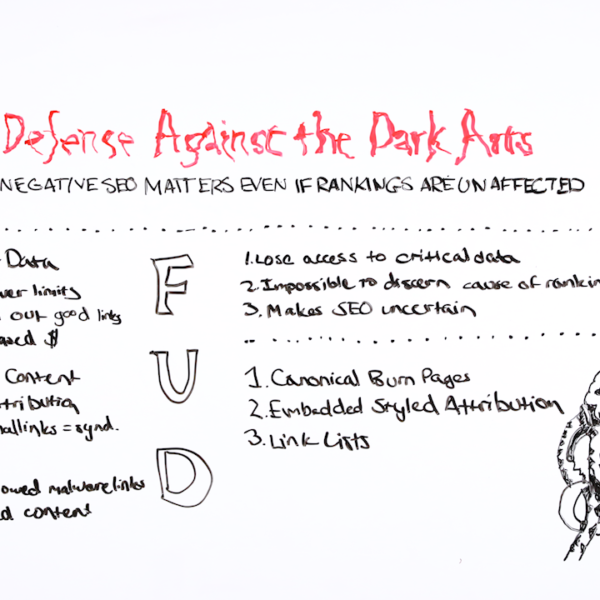 Defense Against the Dark Arts
NEGATIVE SEO MATTERS EVEN IF RANKINGS ARE UNAFFECTED
Data
limits
out good links
$
Content
= synd.
malware links
content
F
U
D
1. Lose access to critical data
2. Impossible to discern cause of
3. Makes SEO uncertain
1. Canonical Burn Pages
2. Embedded Styled Attribution
3. Link Lists